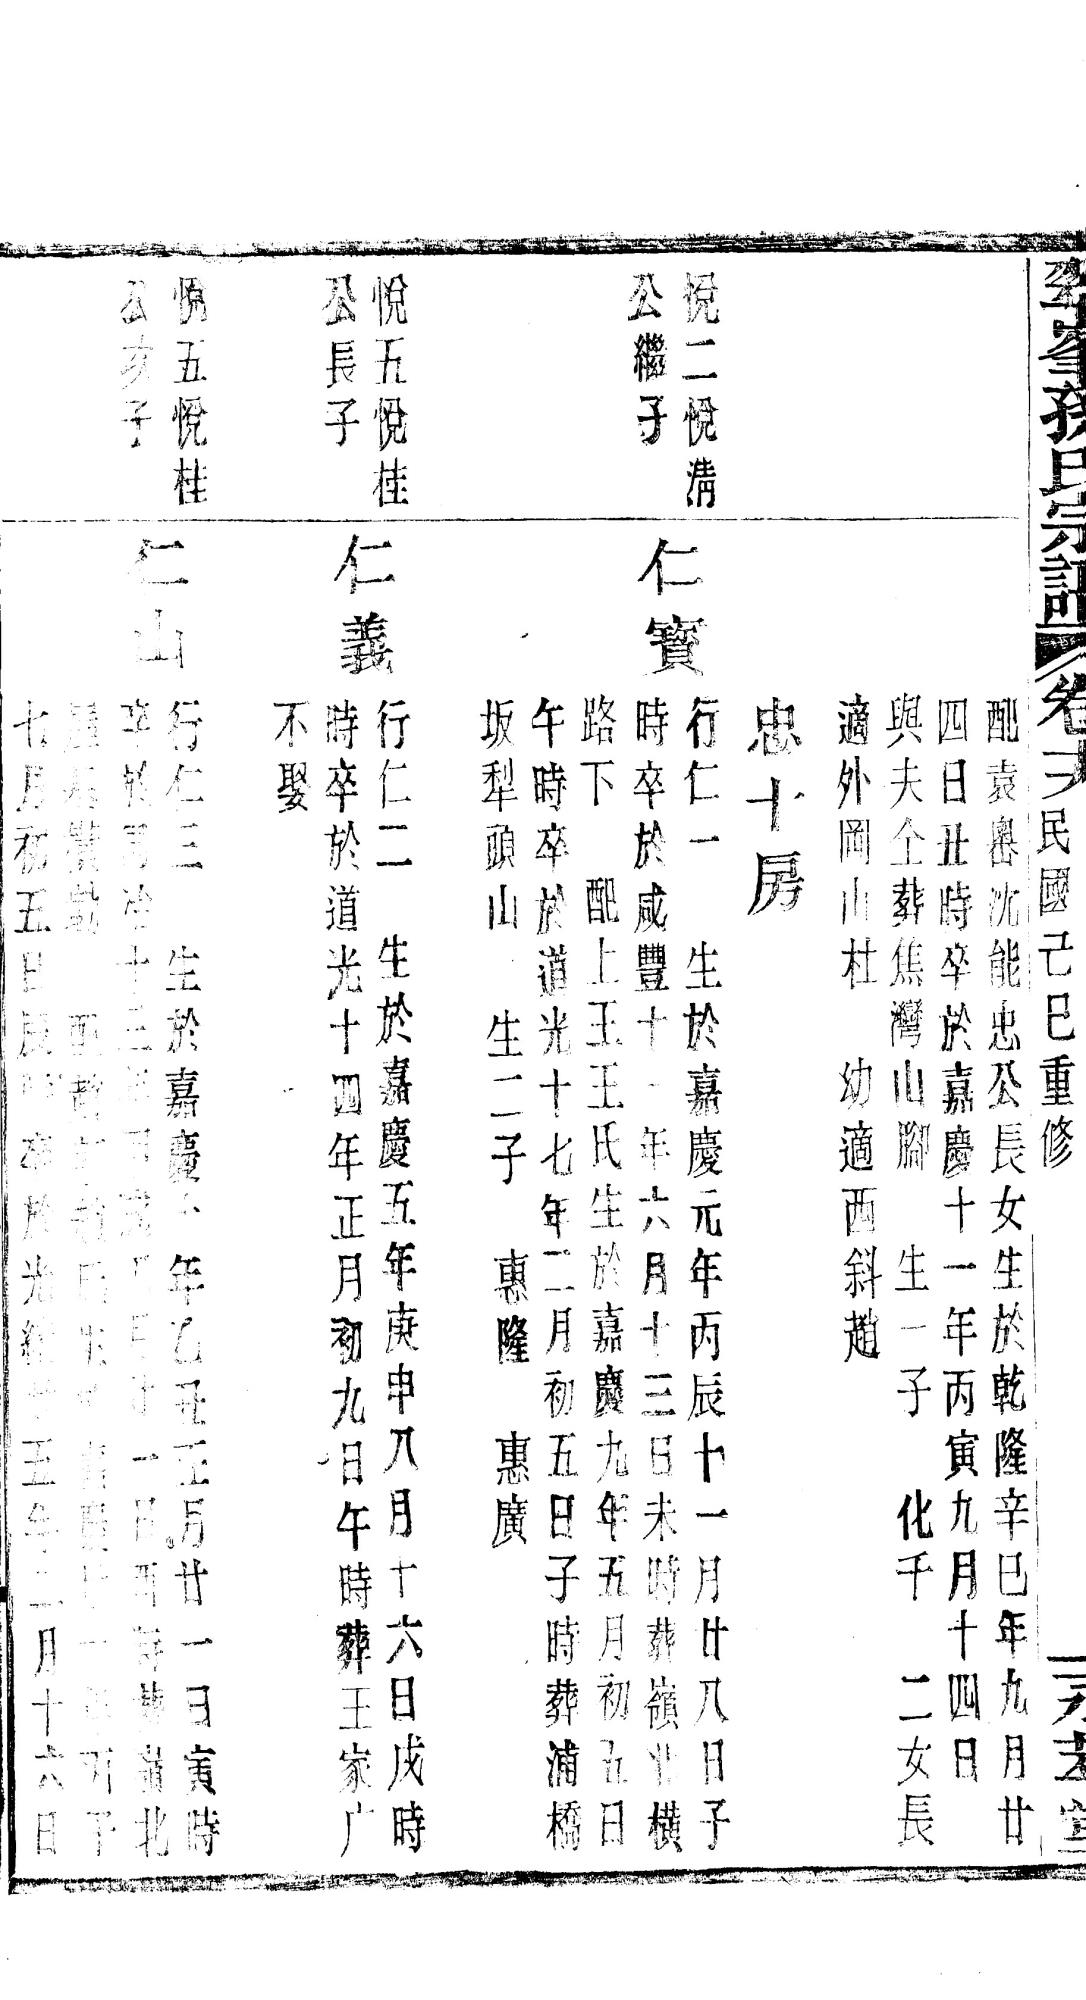 孫氏宗譜 卷 民國己巳重修
配袁嶴沈能忠公長女生於乾隆辛巳年九月廿
四日丑時卒於嘉慶十一年丙寅九月十四日
與夫仝葬焦灣山腳 生一子 化千 二女長
適外岡山杜 幼適西斜趙
忠十房
悅二悅清
公繼子
仁寶
行仁一 生於嘉慶元年丙辰十一月廿八日子
時卒於咸豐十一年六月十三日未時葬嶺北橫
路下 配上王王氏生於嘉慶九年五月初五日
午時卒於道光十七年二月初五日子時葬浦橋
坂犁頭山 生二子 惠隆 惠廣
悅五悅桂
公長子
仁義
行仁二 生於嘉慶五年庚申八月十六日戌時
時卒於道光十四年正月初九日午時葬王家广
不娶
悅五悅桂
公次子
仁山
行仁三 生於嘉慶十年乙丑正月廿一日寅時
卒於 十三年 一日酉時葬嶺北
配 氏生 嘉慶廿一
七月初五日辰時卒於光緒十五年二月十六日